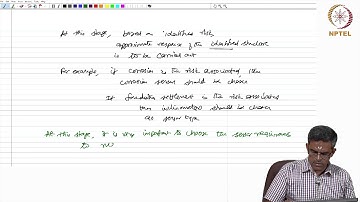 NPTEL
At this stage, based on identified risk
approximate response of the identified structure
is to be carried out
For example, if corrosion is the risk associated then
corrosion sensor should be chosen
If foundation settlement is the risk associated
then inclinometers should be chosen
as sensor type
At this stage, it is very important to choose the sensor requirements
to